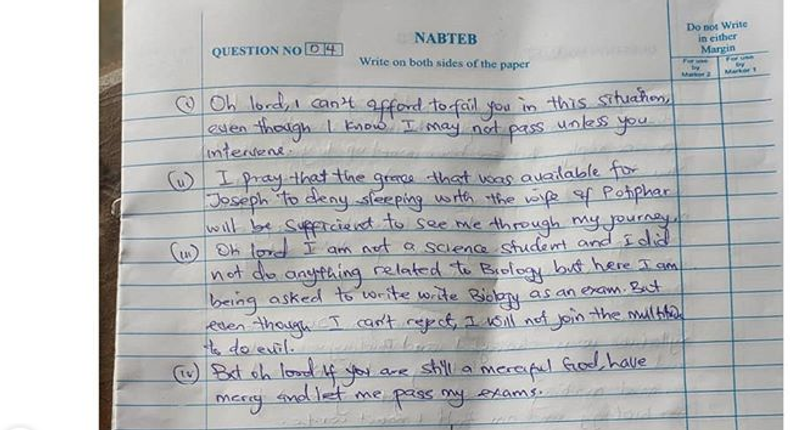 NABTEB
QUESTION NO 04
Write on both sides of the paper
Do not Write
in either
Margin
For use
by
Marker 2
For use
by
Marker 1
(i) Oh lord, I can't afford to fail you in this situation,
even though I know I may not pass unless you
intervene.
(ii) I pray that the grace that was available for
Joseph to deny sleeping with the wife of Potiphar
will be sufficient to see me through my journey.
(iii) Oh lord I am not a science student and I did
not do anything related to Biology but here I am
being asked to write write Biology as an exam. But
even though I can't reject, I will not join the multitude
to do evil.
(iv) But oh lord if you are still a merciful God, have
mercy and let me pass my exams.